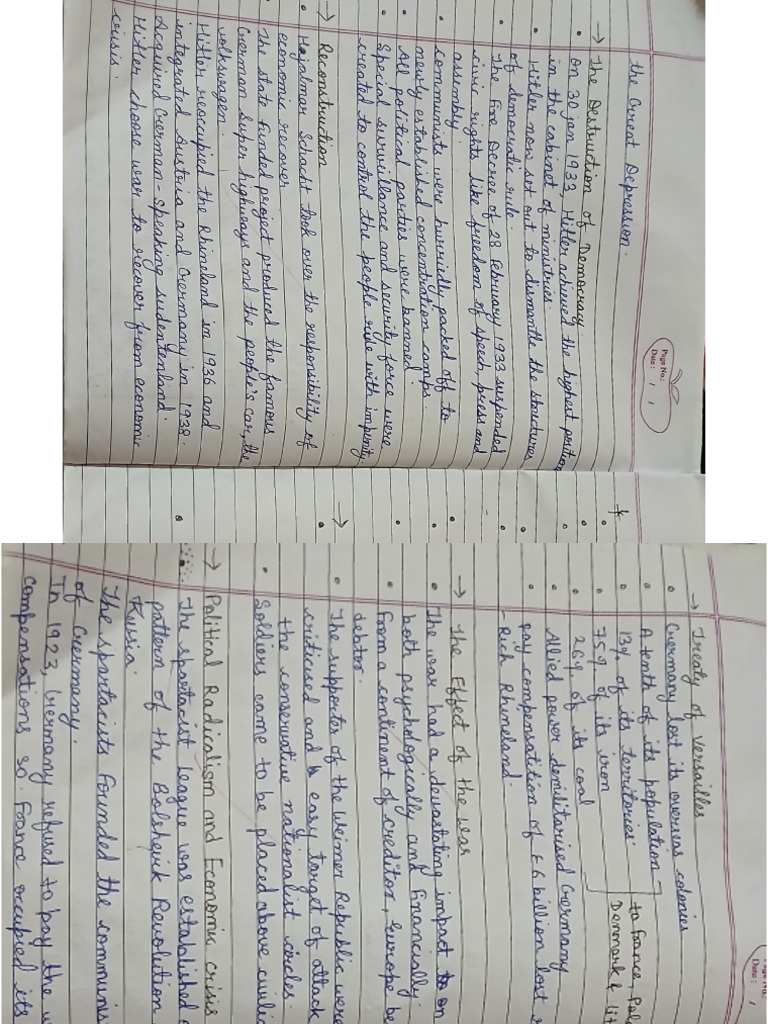 Page No.:
Date: / /
the Great Depression.
→ The Destruction of Democracy
• On 30 jan 1933, Hitler achieved the highest position
in the cabinet of ministries.
• Hitler now set out to dismantle the structures
of democratic rule.
• The Fire Decree of 28 February 1933 suspended
civic rights like freedom of speech, press and
assembly.
• Communists were hurriedly packed off to
newly established concentration camps.
• All political parties were banned.
• Special surveillance and security force were
created to control the people rule with impunity.
→ Reconstruction
• Hjalmar Schacht took over the responsibility of
economic recover
• The state funded project produced the famous
German super highways and the people's car, the
volkswagen.
• Hitler reoccupied the Rhineland in 1936 and
integrated Austria and Germany in 1938.
• Acquired German-speaking sudentenland.
• Hitler choose war to recover from economic
crisis.
Page No.:
Date: /
→ Treaty of Versailles
• Germany lost its overseas colonies
• A tenth of its population
• 13% of its territories. to France, Pol
• 75% of its iron Denmark & lit
• 26% of its coal
• Allied power demilitarised Germany
• pay compensatition of £6 billion lost
- Rich Rhineland.
→ The Effect of the war
• The war had a devastating impact to on
both psychologically and financially.
• From a continent of creditor, Europe be
debtor.
• The supporter of the Weimer Republic were
criticised and easy target of attack
the conservative nationalist circles.
• Soldiers came to be placed above civili
→ Political Radicalism and Economic crisis
• The spartacist league was established
pattern of the Bolshevik Revolution
Russia.
• The spartacists founded the communis
of Germany.
• In 1923, Germany refused to pay the w
compensations so. France occupied its